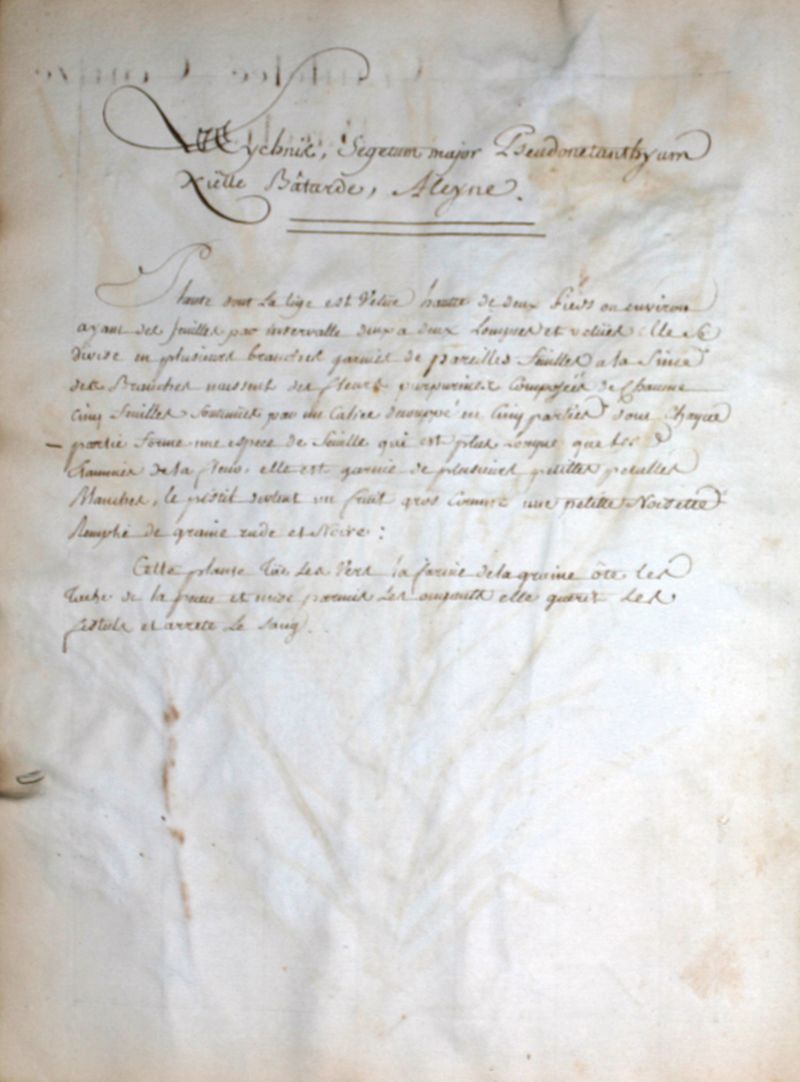 Lychnis, Segetum major Pseudomelanthyum
Nielle Bâtarde, Aleyne.
Plante dont la tige est Velüe haute de deux Pieds ou environ
ayant des feuilles par intervalle deux a deux Longues et velues Elle se
divise en plusieurs branches garnies de pareilles feuilles a la Sime
des Branches naissent des fleurs purpurines Composées de Chacune
cinq feuilles Soutenues par un Calice decouppé en Cinq parties dont Chaque
partie forme une espece de feuille qui est plus Longue que les
de la fleur. elle est garnie de plusieurs petittes
blanches, le pistil devient un fruit gros Comme une petitte Noisette
Remplie de graine rude et Noire :
Cette plante Tüe Les Vers la farine de la graine ôte les
Tache de la peau et mise parmis Les onguents elle guerit Les
fistules et arrete Le Sang.